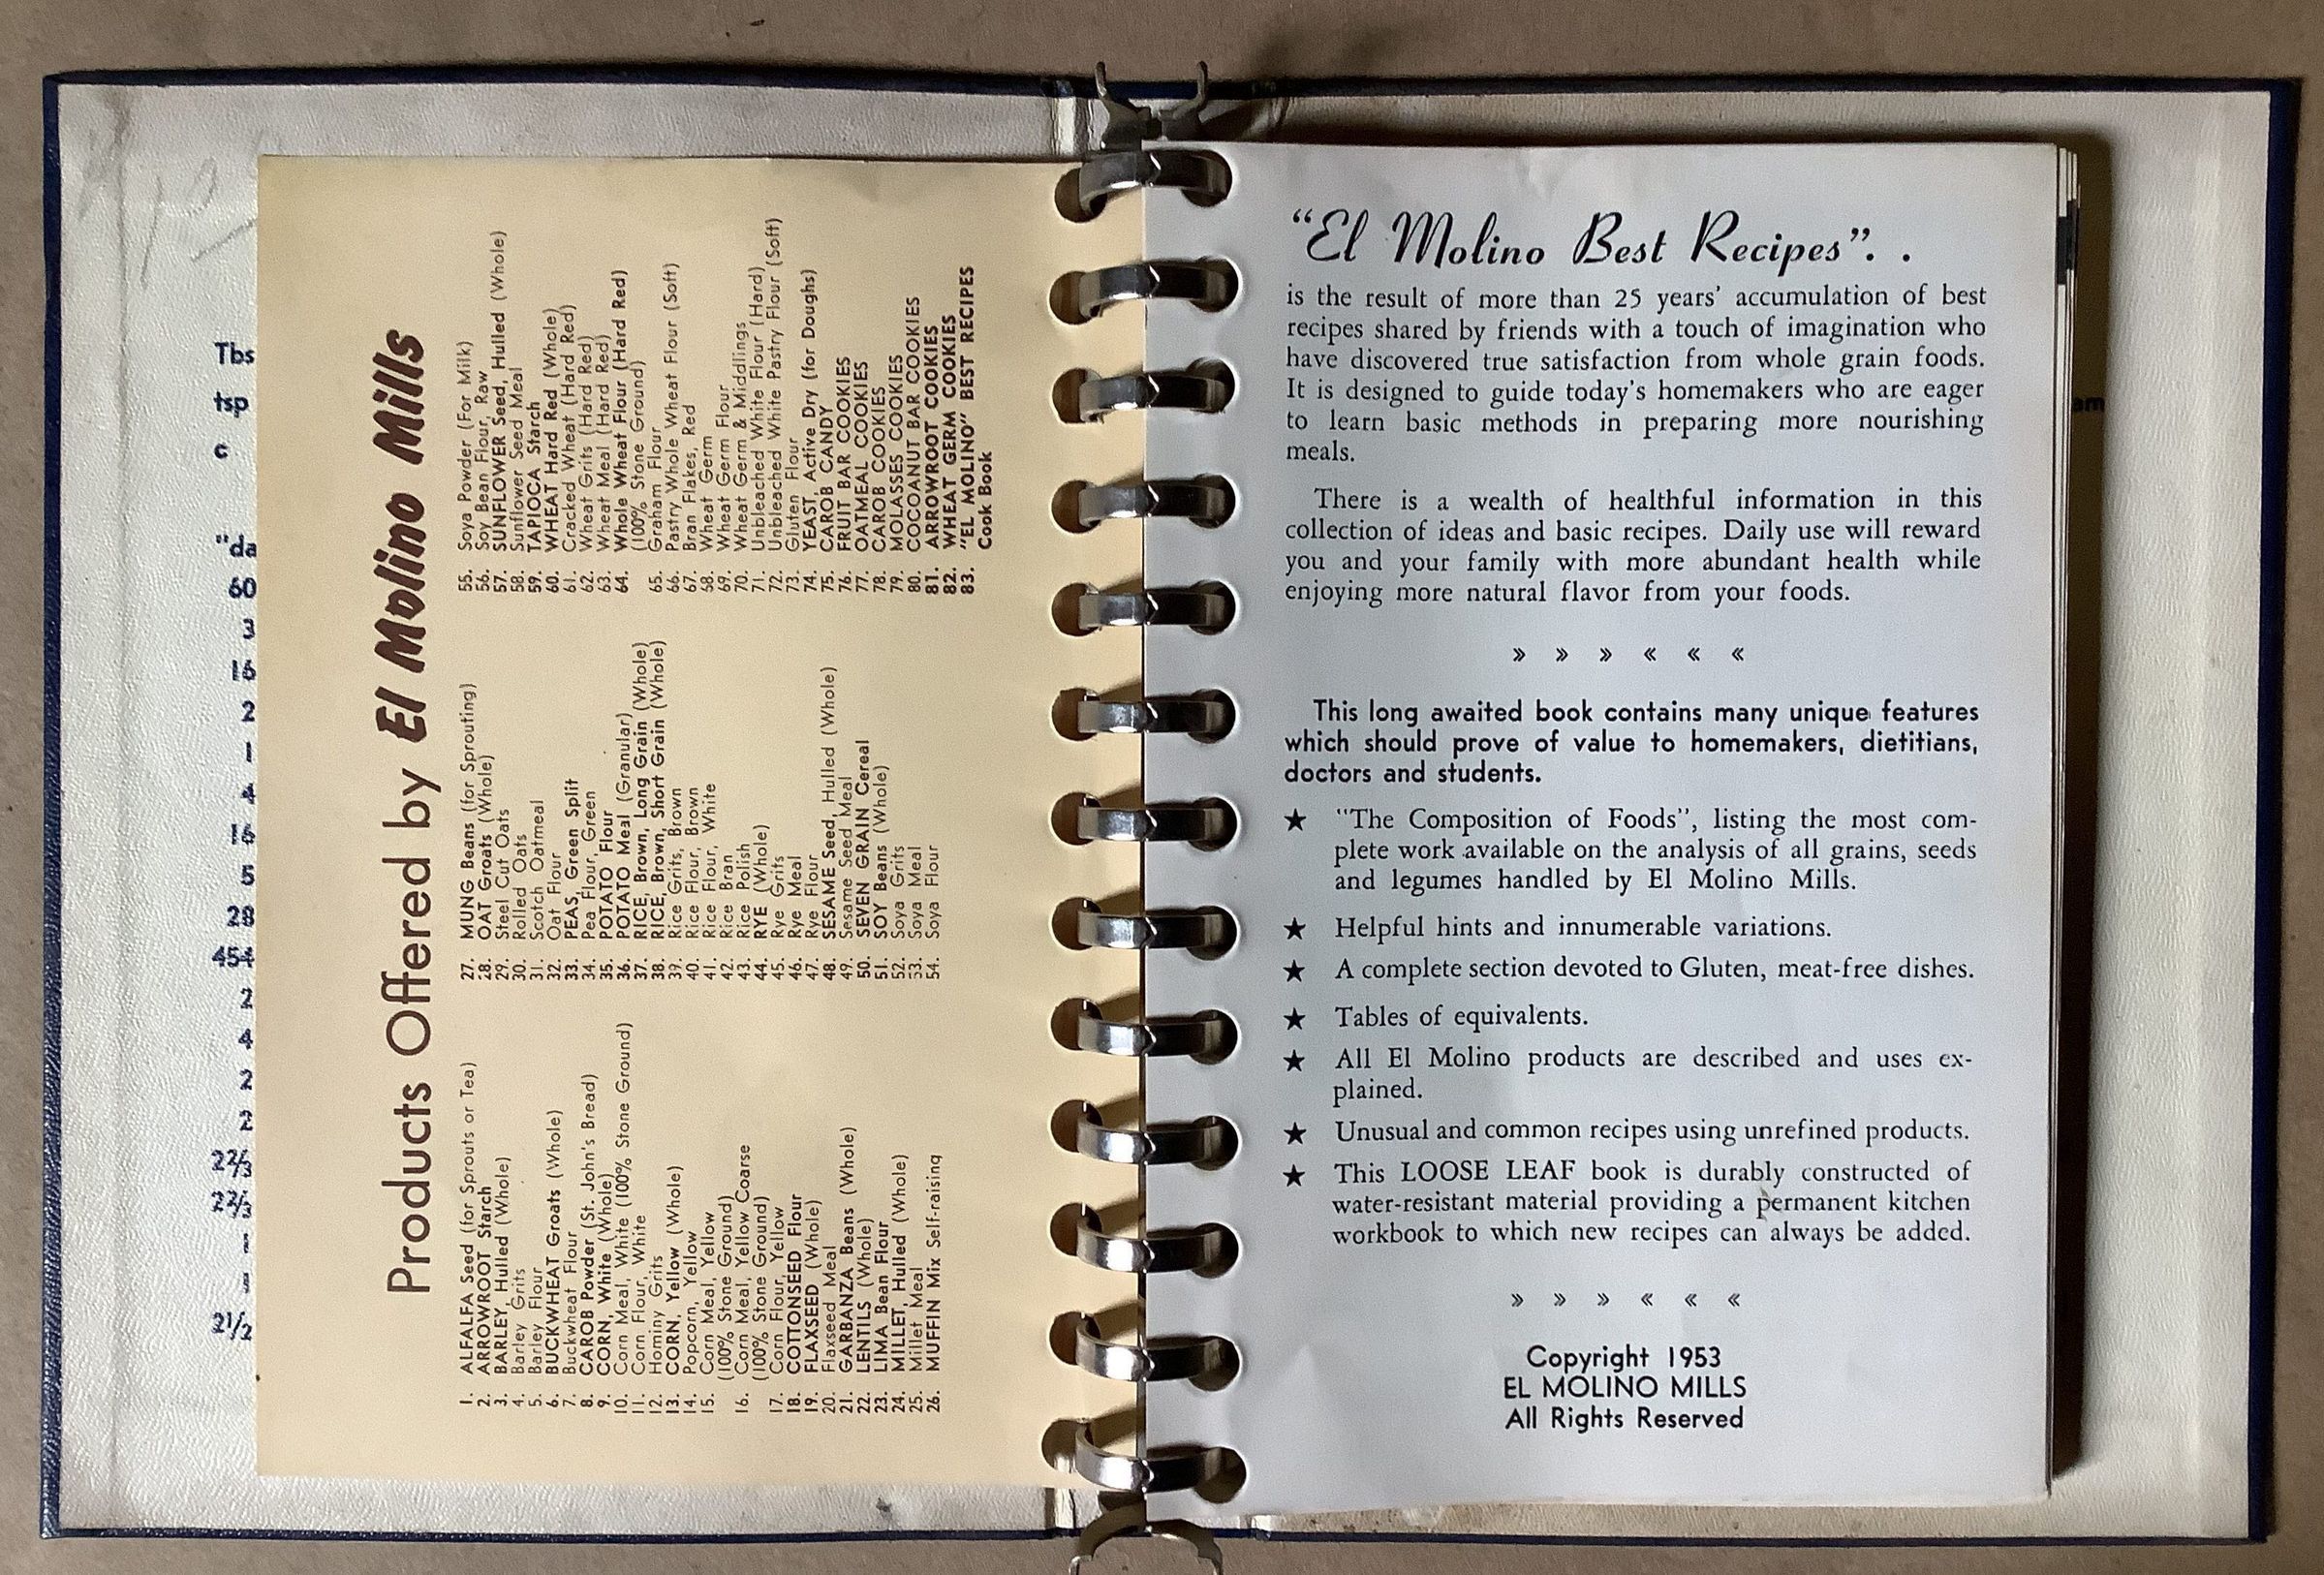 Tbs
tsp
c
"da
60
3
16
2
1
4
16
5
28
454
2
4
2
2
22/3
22/3
1
21/2
Products Offered by El Molino Mills
1. ALFALFA Seed (for Sprouts or Tea)
2. ARROWROOT Starch
3. BARLEY, Hulled (Whole)
4. Barley Grits
5. Barley Flour
6. BUCKWHEAT Groats (Whole)
7. Buckwheat Flour
8. CAROB Powder (St. John's Bread)
9. CORN, White (Whole)
10. Corn Meal, White (100% Stone Ground)
11. Corn Flour, White
12. Hominy Grits
13. CORN, Yellow (Whole)
14. Popcorn, Yellow
15. Corn Meal, Yellow
(100% Stone Ground)
16. Corn Meal, Yellow Coarse
(100% Stone Ground)
17. Corn Flour, Yellow
18. COTTONSEED Flour
19. FLAXSEED (Whole)
20. Flaxseed Meal
21. GARBANZA Beans (Whole)
22. LENTILS (Whole)
23. LIMA Bean Flour
24. MILLET, Hulled (Whole)
25. Millet Meal
26. MUFFIN Mix Self-raising
27. MUNG Beans (for Sprouting)
28. OAT Groats (Whole)
29. Steel Cut Oats
30. Rolled Oats
31. Scotch Oatmeal
32. Oat Flour
33. PEAS, Green Split
34. Pea Flour, Green
35. POTATO Flour
36. POTATO Meal (Granular)
37. RICE, Brown, Long Grain (Whole)
38. RICE, Brown, Short Grain (Whole)
39. Rice Grits, Brown
40. Rice Flour, Brown
41. Rice Flour, White
42. Rice Bran
43. Rice Polish
44. RYE (Whole)
45. Rye Grits
46. Rye Meal
47. Rye Flour
48. SESAME Seed, Hulled (Whole)
49. Sesame Seed Meal
50. SEVEN GRAIN Cereal
51. SOY Beans (Whole)
52. Soya Grits
53. Soya Meal
54. Soya Flour
55. Soya Powder (For Milk)
56. Soy Bean Flour, Raw
57. SUNFLOWER Seed, Hulled (Whole)
58. Sunflower Seed Meal
59. TAPIOCA Starch
60. WHEAT Hard Red (Whole)
61. Cracked Wheat (Hard Red)
62. Wheat Grits (Hard Red)
63. Wheat Meal (Hard Red)
64. Whole Wheat Flour (Hard Red)
(100% Stone Ground)
65. Graham Flour
66. Pastry Whole Wheat Flour (Soft)
67. Bran Flakes, Red
68. Wheat Germ
69. Wheat Germ Flour
70. Wheat Germ & Middlings
71. Unbleached White Flour (Hard)
72. Unbleached White Pastry Flour (Soft)
73. Gluten Flour
74. YEAST, Active Dry (for Doughs)
75. CAROB CANDY
76. FRUIT BAR COOKIES
77. OATMEAL COOKIES
78. CAROB COOKIES
79. MOLASSES COOKIES
80. COCOANUT BAR COOKIES
81. ARROWROOT COOKIES
82. WHEAT GERM COOKIES
83. "EL MOLINO" BEST RECIPES
Cook Book
"El Molino Best Recipes". .
is the result of more than 25 years' accumulation of best
recipes shared by friends with a touch of imagination who
have discovered true satisfaction from whole grain foods.
It is designed to guide today's homemakers who are eager
to learn basic methods in preparing more nourishing
meals.
There is a wealth of healthful information in this
collection of ideas and basic recipes. Daily use will reward
you and your family with more abundant health while
enjoying more natural flavor from your foods.
» » » « « «
This long awaited book contains many unique features
which should prove of value to homemakers, dietitians,
doctors and students.
★ "The Composition of Foods", listing the most com-
plete work available on the analysis of all grains, seeds
and legumes handled by El Molino Mills.
★ Helpful hints and innumerable variations.
★ A complete section devoted to Gluten, meat-free dishes.
★ Tables of equivalents.
★ All El Molino products are described and uses ex-
plained.
★ Unusual and common recipes using unrefined products.
★ This LOOSE LEAF book is durably constructed of
water-resistant material providing a permanent kitchen
workbook to which new recipes can always be added.
» » » « « «
Copyright 1953
EL MOLINO MILLS
All Rights Reserved
am